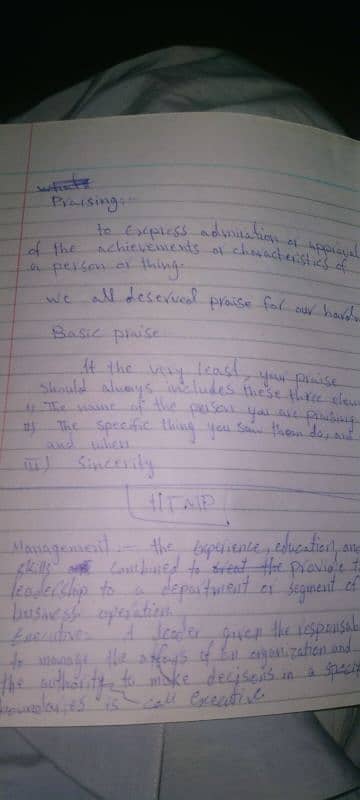 Praising:-
to express admiration or approval
of the achievements or characteristics of
a person or thing.
we all deserved praise for our hard
Basic praise
At the very least, your praise
should always includes these three elem
i) The name of the person you are praising
ii) The specific thing you saw them do, and
and when
iii) Sincerity
HTMP
Management:- the experience, education, and
skills combined to creat the provide t
leadership to a department or segment of
business operation.
Executive:- A leader given the responsab
to manage the affays of an organization and
the authority to make decisons in a speci
boundaries is call executive